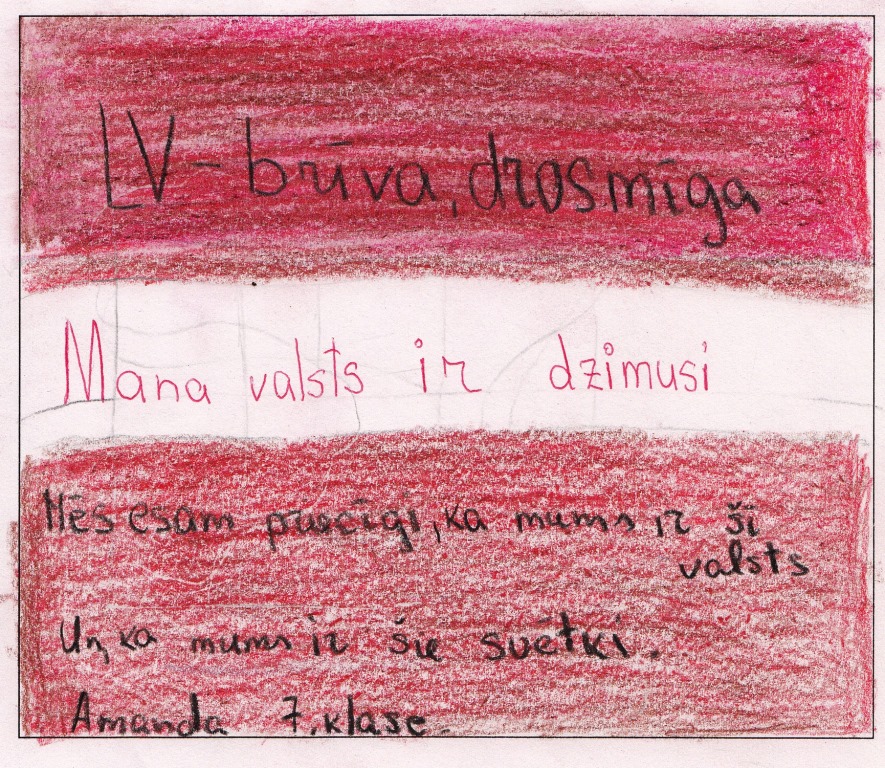 LV - brīva, drosmīga
Mana valsts ir dzimusi
Mēs esam priecīgi, ka mums ir šī
valsts
Un, ka mums ir šie svētki.
Amanda 7. klase.